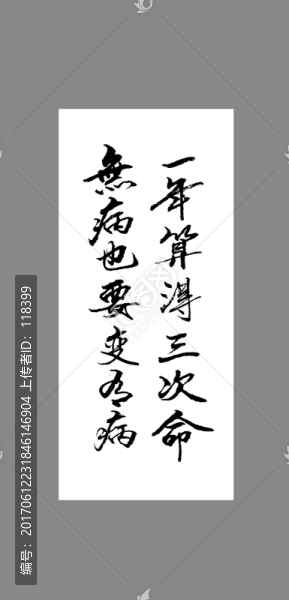 一年算得三次命
無病也要变有病
编号：20170612231846146904 上传者ID：118399